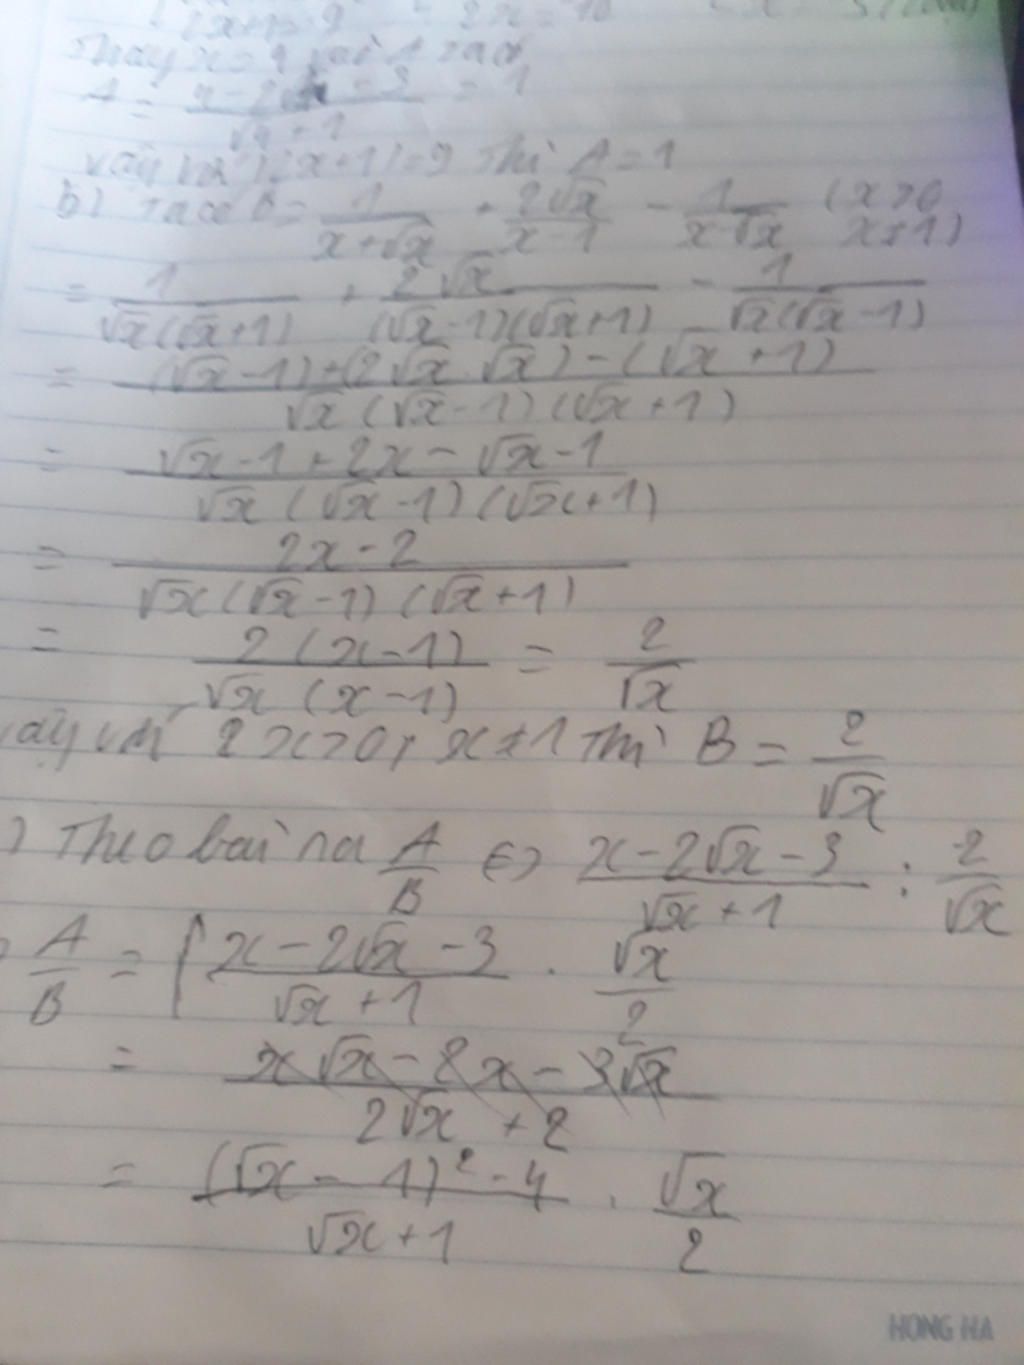 Thay x = 4 vào A ta có
A = (4 - 2√4 - 3)/(√4 + 1) = 1
Vậy với |2x+1| = 9 thì A = 1
b) Ta có B = 1/(x+√x) + 2√x/(x-1) - 1/(x-√x) (x>0 x≠1)
= 1/(√x(√x+1)) + 2√x/((√x-1)(√x+1)) - 1/(√x(√x-1))
= ((√x-1)+(2√x.√x)-(√x+1))/(√x(√x-1)(√x+1))
= (√x-1+2x-√x-1)/(√x(√x-1)(√x+1))
= (2x-2)/(√x(√x-1)(√x+1))
= 2(x-1)/(√x(x-1)) = 2/√x
Vậy với x>0, x≠1 thì B = 2/√x
) Theo bài ra A/B ⇔ (x-2√x-3)/(√x+1) : 2/√x
A/B = (x-2√x-3)/(√x+1) . √x/2
= (x√x-2x-3√x)/(2√x+2)
= ((√x-1)²-4)/(√x+1) . √x/2
HONG HA